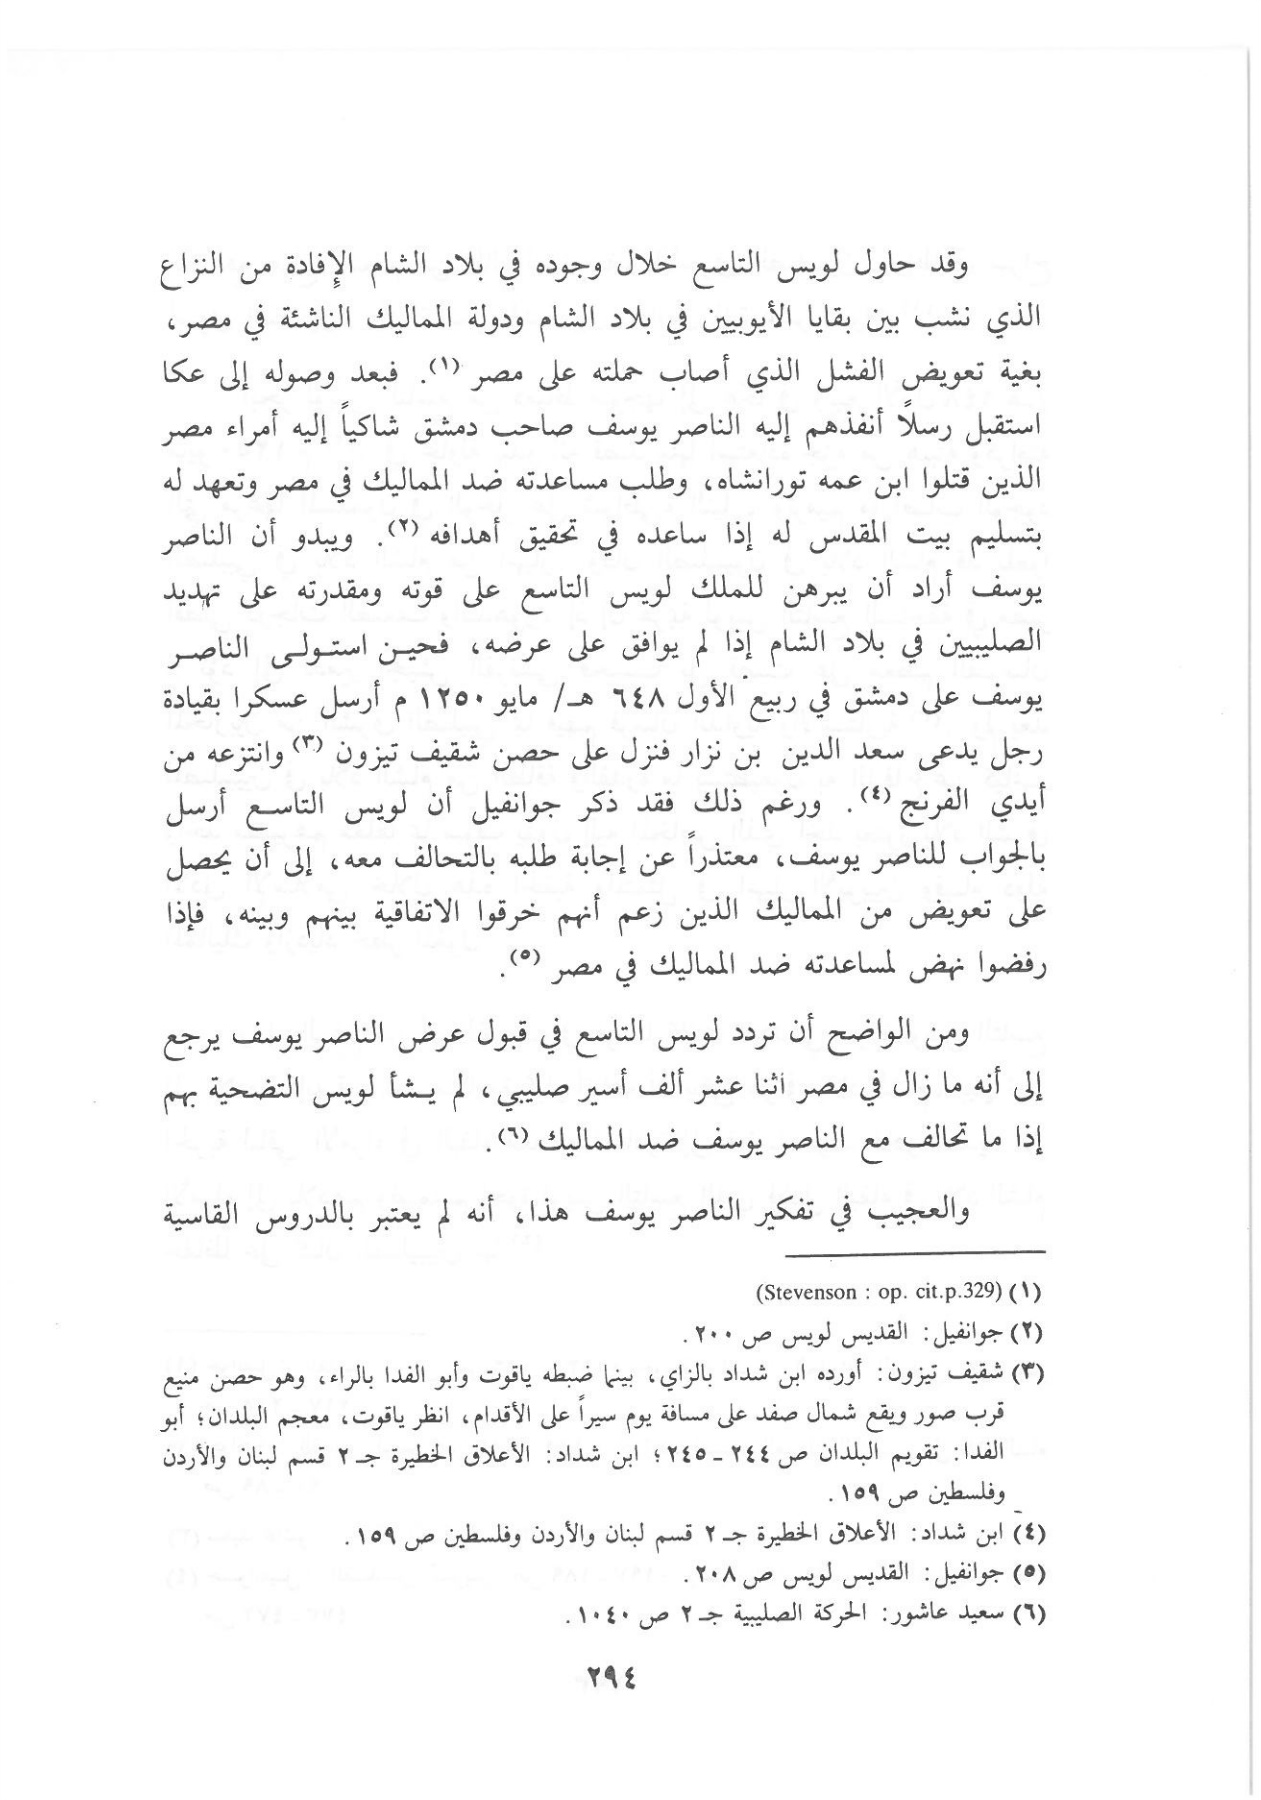 وقد حاول لويس التاسع خلال وجوده في بلاد الشام الإفادة من النزاع
الذي نشب بين بقايا الأيوبيين في بلاد الشام ودولة المماليك الناشئة في مصر،
بغية تعويض الفشل الذي أصاب حملته على مصر (١). فبعد وصوله إلى عكا
استقبل رسلاً أنفذهم إليه الناصر يوسف صاحب دمشق شاكياً إليه أمراء مصر
الذين قتلوا ابن عمه تورانشاه، وطلب مساعدته ضد المماليك في مصر وتعهد له
بتسليم بيت المقدس له إذا ساعده في تحقيق أهدافه (٢). ويبدو أن الناصر
يوسف أراد أن يبرهن للملك لويس التاسع على قوته ومقدرته على تهديد
الصليبيين في بلاد الشام إذا لم يوافق على عرضه، فحين استولى الناصر
يوسف على دمشق في ربيع الأول ٦٤٨ هـ/ مايو ١٢٥٠ م أرسل عسكرا بقيادة
رجل يدعى سعد الدين بن نزار فنزل على حصن شقيف تيزون (٣) وانتزعه من
أيدي الفرنج (٤). ورغم ذلك فقد ذكر جوانفيل أن لويس التاسع أرسل
بالجواب للناصر يوسف، معتذراً عن إجابة طلبه بالتحالف معه، إلى أن يحصل
على تعويض من المماليك الذين زعم أنهم خرقوا الاتفاقية بينهم وبينه، فإذا
رفضوا نهض لمساعدته ضد المماليك في مصر (٥).
ومن الواضح أن تردد لويس التاسع في قبول عرض الناصر يوسف يرجع
إلى أنه ما زال في مصر اثنا عشر ألف أسير صليبي، لم يشأ لويس التضحية بهم
إذا ما تحالف مع الناصر يوسف ضد المماليك (٦).
والعجيب في تفكير الناصر يوسف هذا، أنه لم يعتبر بالدروس القاسية
(١) (Stevenson : op. cit.p.329)
(٢) جوانفيل: القديس لويس ص ٢٠٠.
(٣) شقيف تيزون: أورده ابن شداد بالزاي، بينما ضبطه ياقوت وأبو الفدا بالراء، وهو حصن منيع
قرب صور ويقع شمال صفد على مسافة يوم سيراً على الأقدام، انظر ياقوت، معجم البلدان؛ أبو
الفدا: تقويم البلدان ص ٢٤٤ ـ ٢٤٥؛ ابن شداد: الأعلاق الخطيرة جـ ٢ قسم لبنان والأردن
وفلسطين ص ١٥٩.
(٤) ابن شداد: الأعلاق الخطيرة جـ ٢ قسم لبنان والأردن وفلسطين ص ١٥٩.
(٥) جوانفيل: القديس لويس ص ٢٠٨.
(٦) سعيد عاشور: الحركة الصليبية جـ ٢ ص ١٠٤٠.
٢٩٤